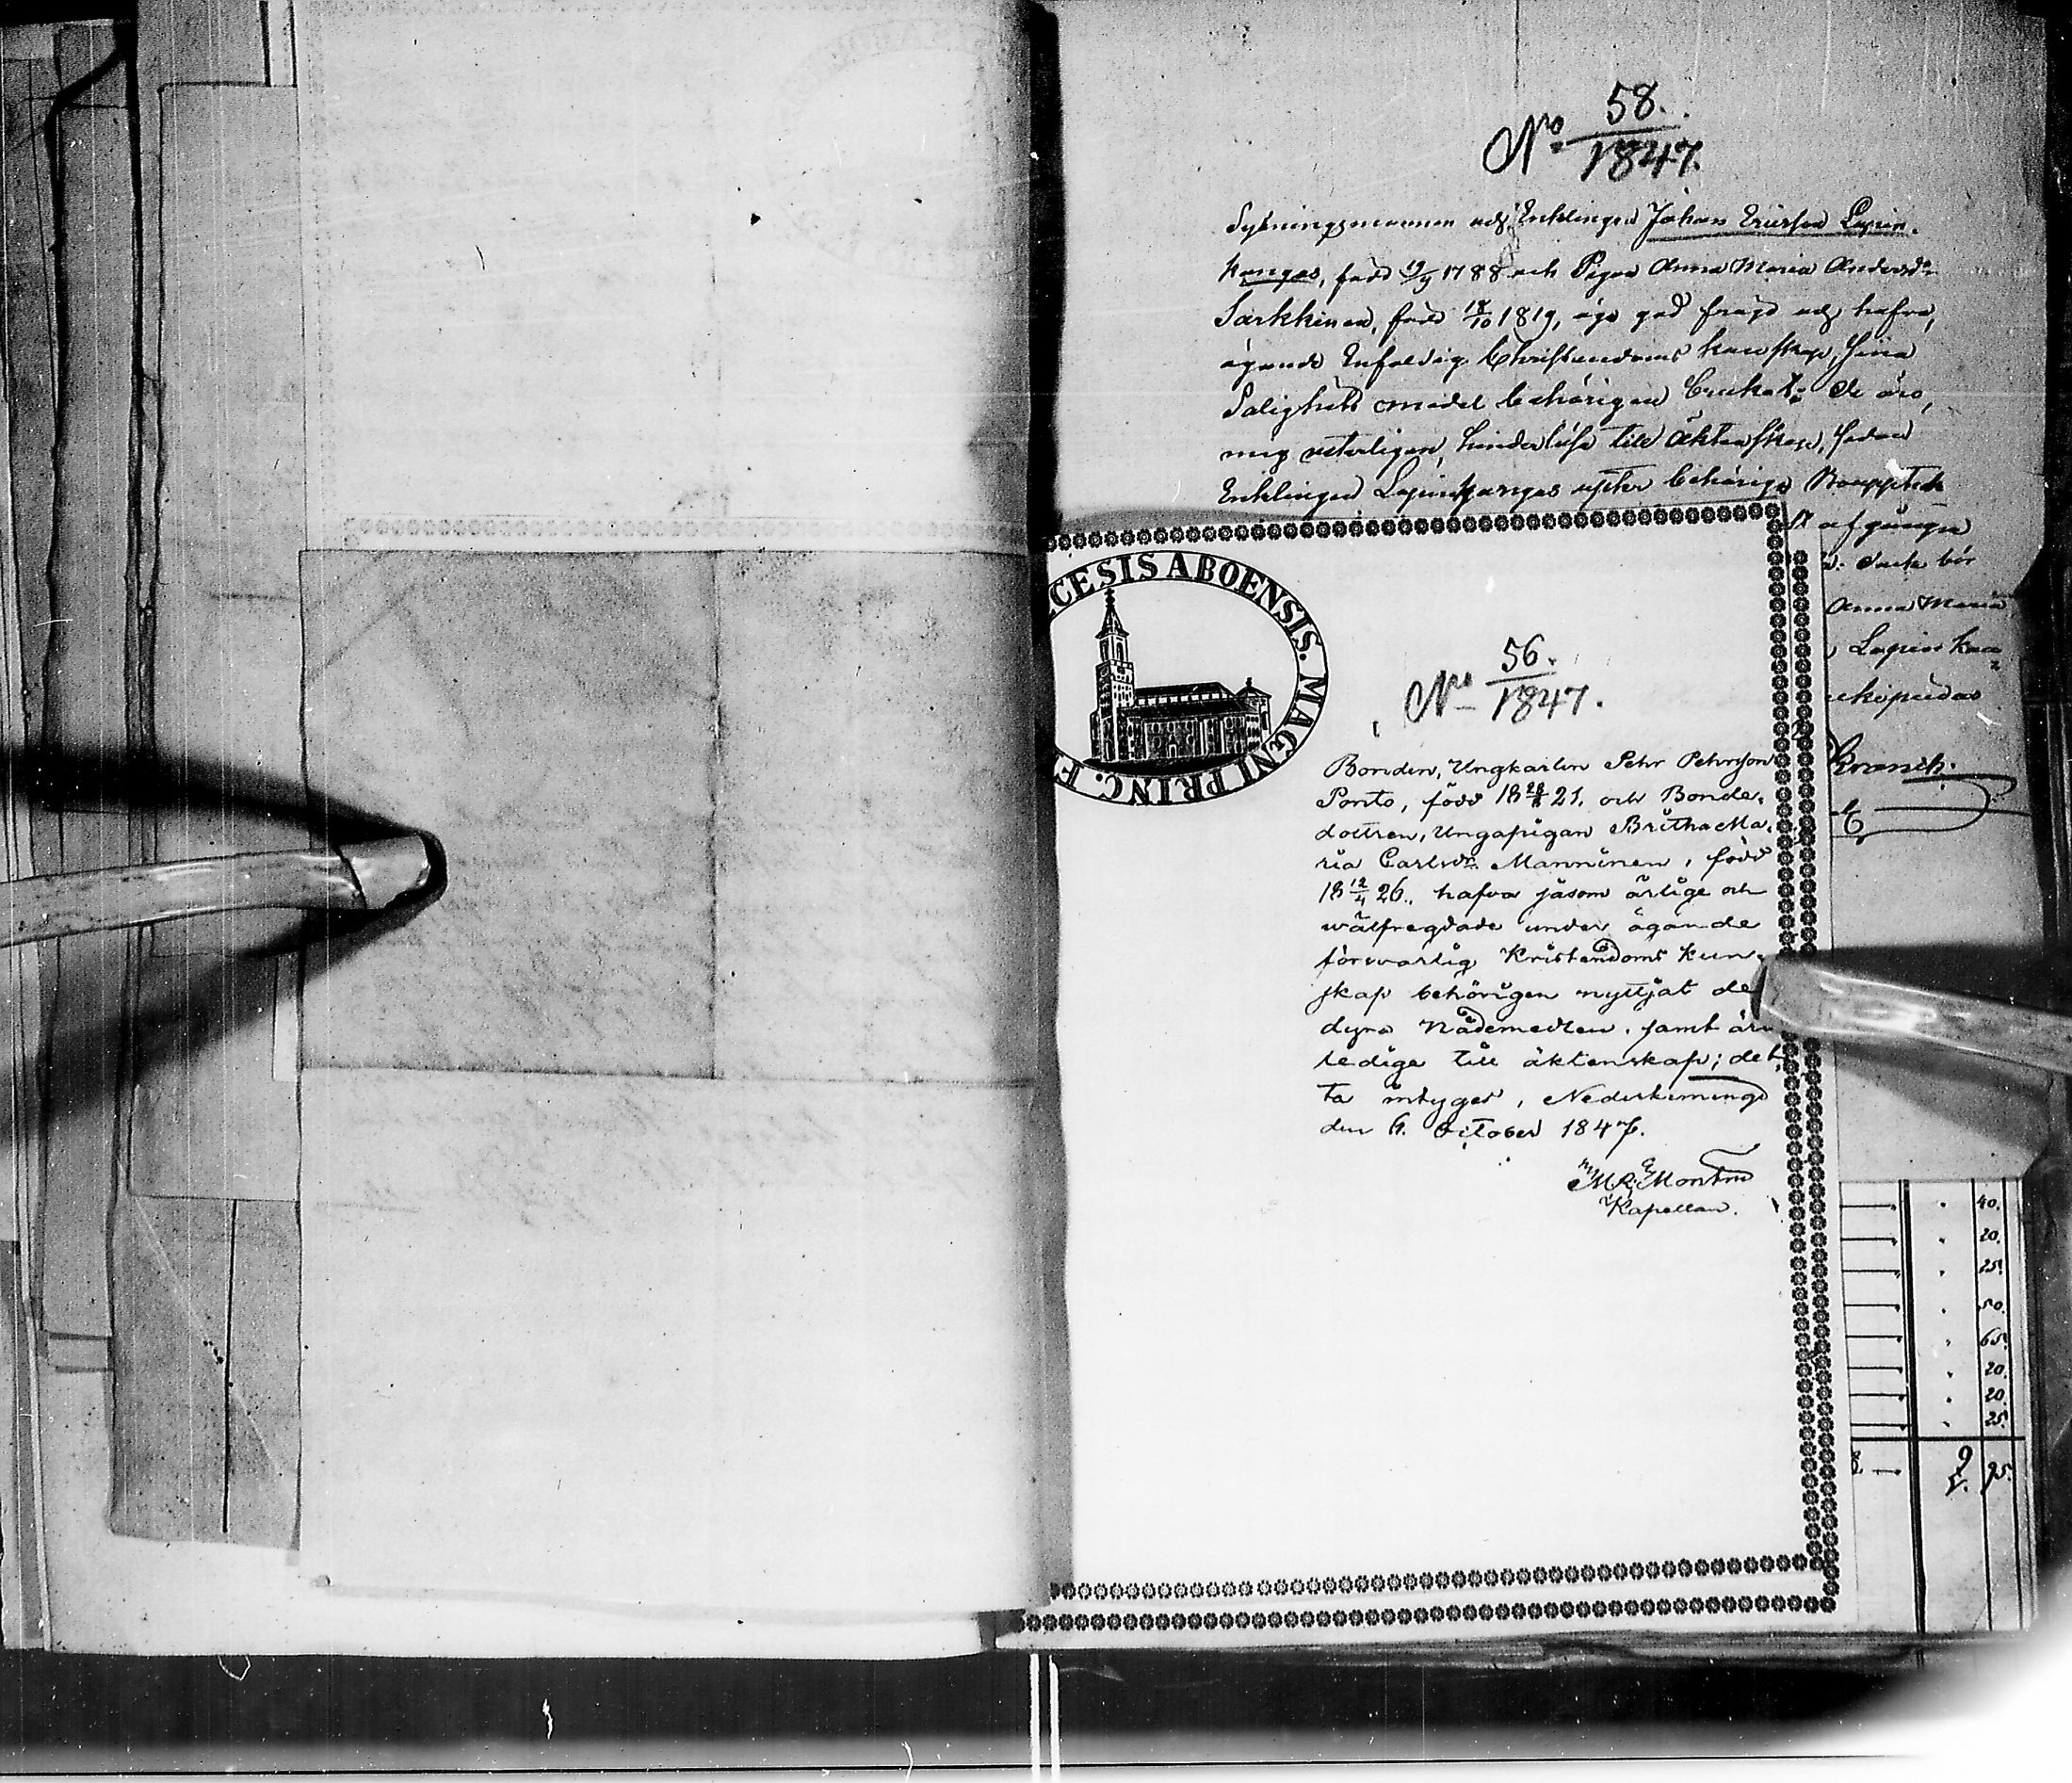 No 58.
1847.
Sytningsmannen och Enklingen Johan Ericsson Lapin-
kangas, född 19/9 1788 och Pigan Anna Maria Andersdr
Sarkkinen, född 18/10 1819, äga god frägd och hafva,
ägande Enfaldig Christendoms kunskap, sina
Salighets medel behörigen brukat; De äro,
mig veterligen, hinderlöse till äktenskap, sedan
Enklingen Lapinkangas efter behörig
afgången
bör
Anna Maria
Lapinkan
CESIS ABOENSIS. MAGNI PRINC. F
No 56.
1847.
Bonden, Ungkarlen Pehr Pehrsson
Ponto, född 18 28/8 21, och Bonde-
dottren, Ungapigan Britha Ma-
ria Carlsdr. Manninen, född
18 12/4 26., hafva såsom ärlige och
wälfregdade under ägande
försvarlig Kristendoms kun-
skap behörigen nyttjat de
dyra Nådemedlen, samt äro
ledige till äktenskap; det-
ta intygas, Nederkiminge
den 6. October 1847.
Kapellan.
40.
20.
25.
50.
65.
20.
20.
25.
9 95.